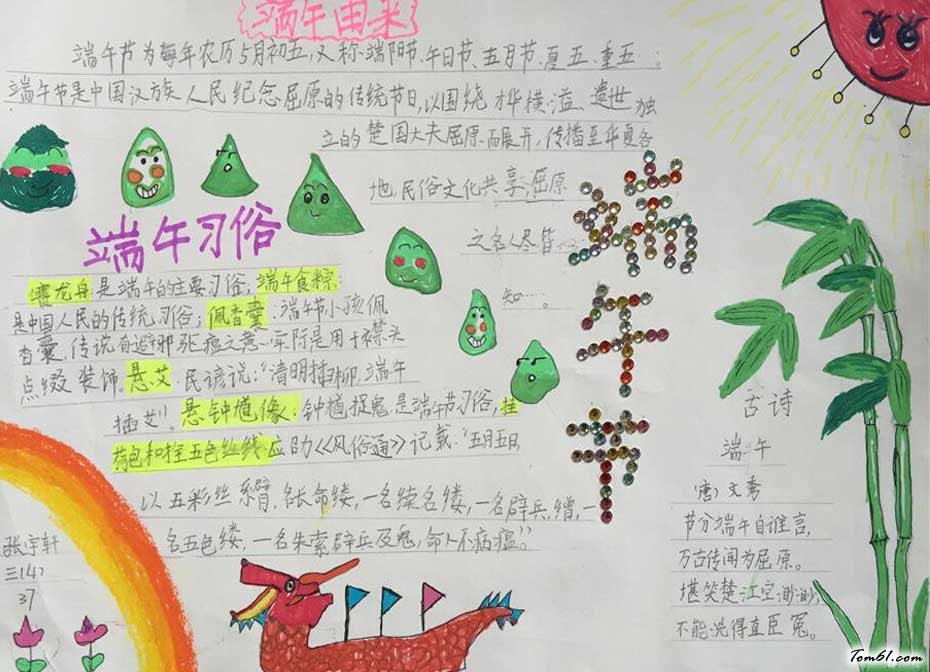 端午由来
端午节为每年农历5月初五,又称端阳节、午日节、五月节、夏五、重五。
端午节是中国汉族人民纪念屈原的传统节日,以围绕才华横溢、遗世独
立的楚国大夫屈原而展开,传播至华夏各
地,民俗文化共享,屈原
之名人尽皆
知……。
端午节
端午习俗
赛龙舟是端午的主要习俗;端午食粽
是中国人民的传统习俗;佩香囊:端午节小孩佩
香囊,传说有避邪驱瘟之意,实际是用于襟头
点缀装饰。悬艾:民谚说:“清明插柳,端午
插艾”。悬钟馗像:钟馗捉鬼,是端午节习俗;挂
荷包和拴五色丝线:应劭《风俗通》记载:“五月五日,
以五彩丝系臂,名长命缕,一名续名缕,一名辟兵缯,一
名五色缕,一名朱索,辟兵及鬼,命人不病瘟。”
古诗
端午
(唐)文秀
节分端午自谁言,
万古传闻为屈原。
堪笑楚江空渺渺,
不能洗得直臣冤。
张宇轩
三(4)
37
Tom61.com